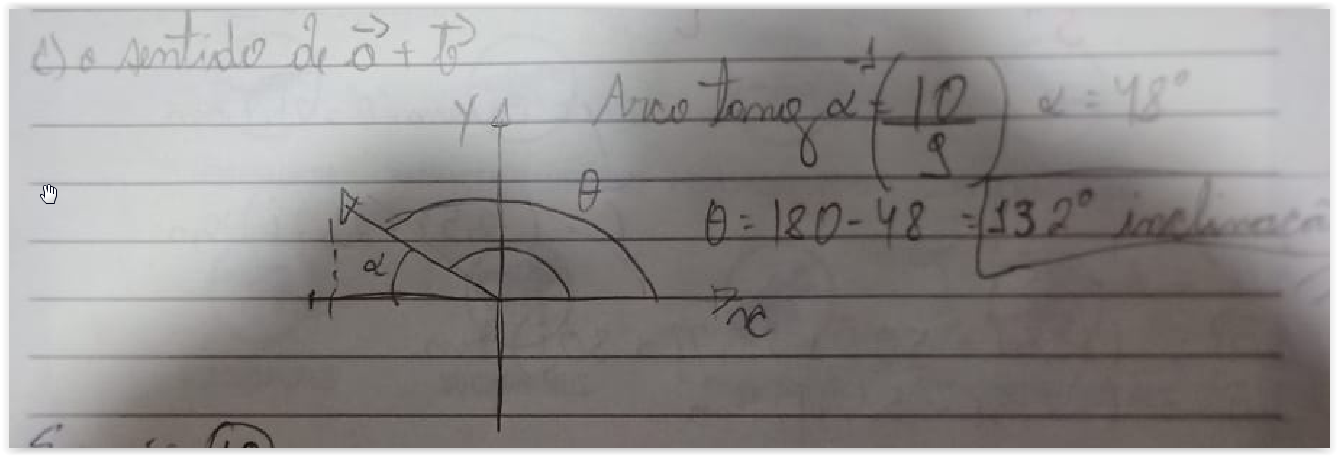 c) o sentido de a⃗ + b⃗
Y
Arco tang α⁻¹ = (10/9) α = 48°
θ
θ = 180 - 48 = 132° inclinaçã
α
x